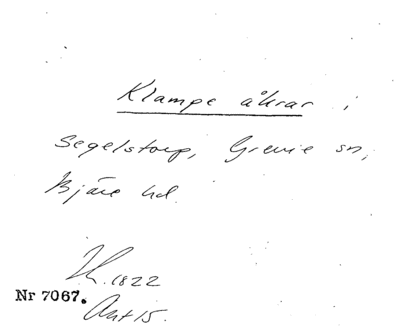 Klampe åkrar i
Segelstorp, Grevie sn,
Bjäre hd.
1822
Nr 7067.
Akt 15.